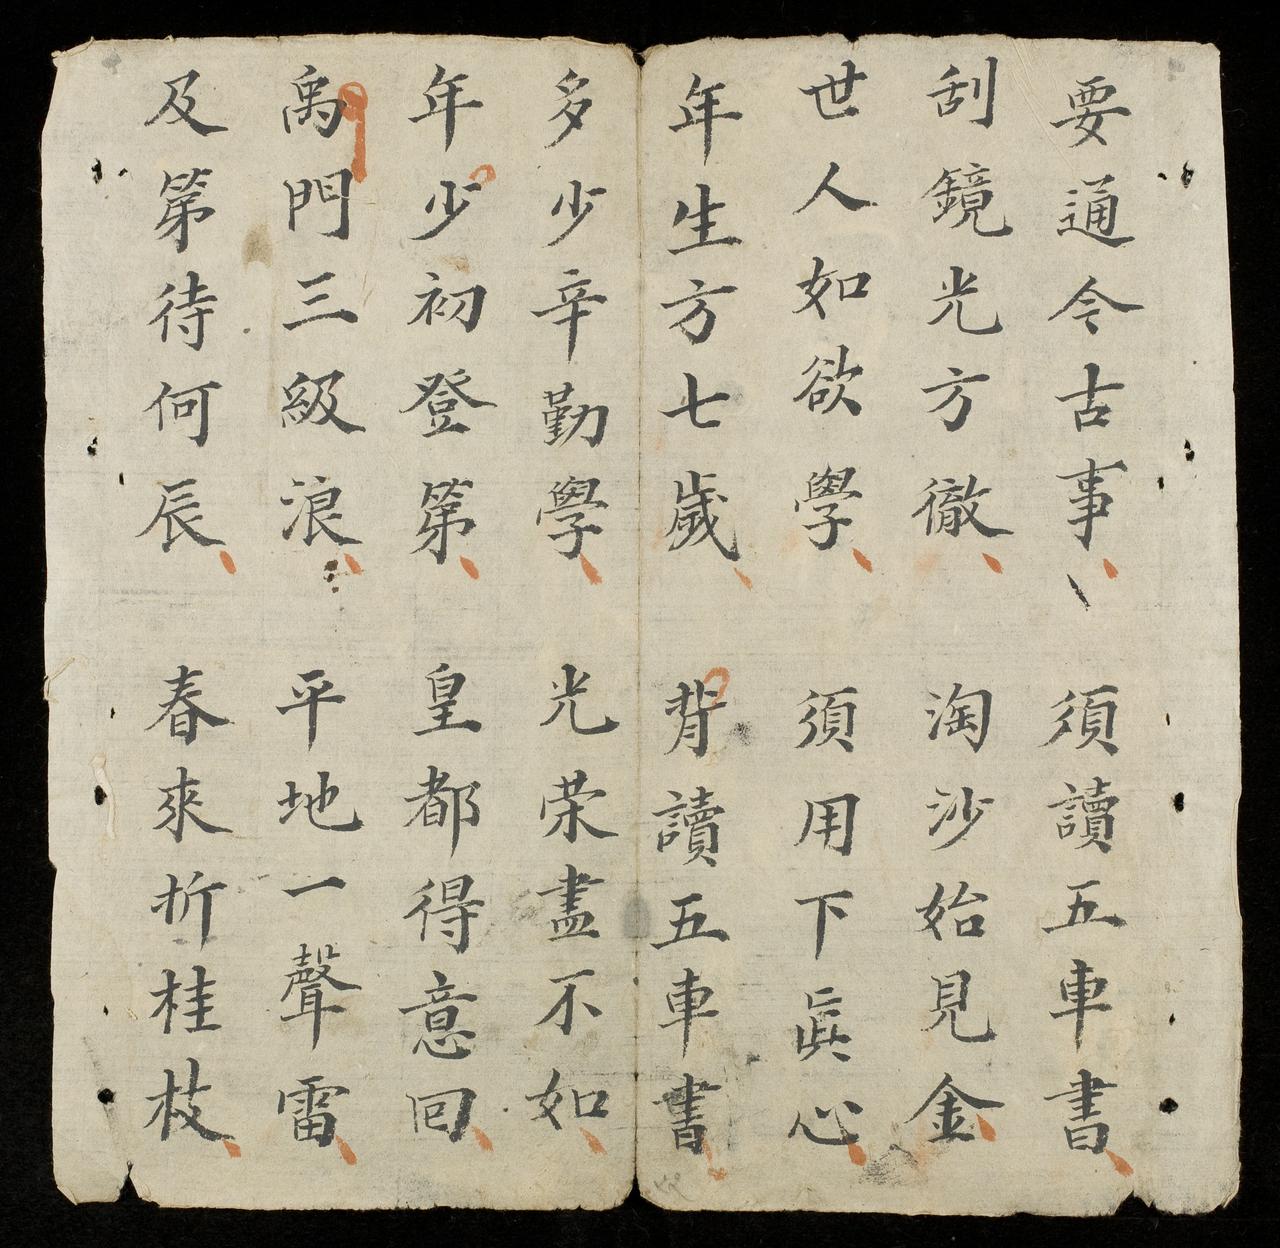 要通今古事須讀五車書
刮鏡光方徹淘沙始見金
世人如欲學須用下眞心
年生方七歲背讀五車書
多少辛勤學光荣盡不如
年少初登第皇都得意回
禹門三級浪平地一聲雷
及第待何辰春來折桂枝